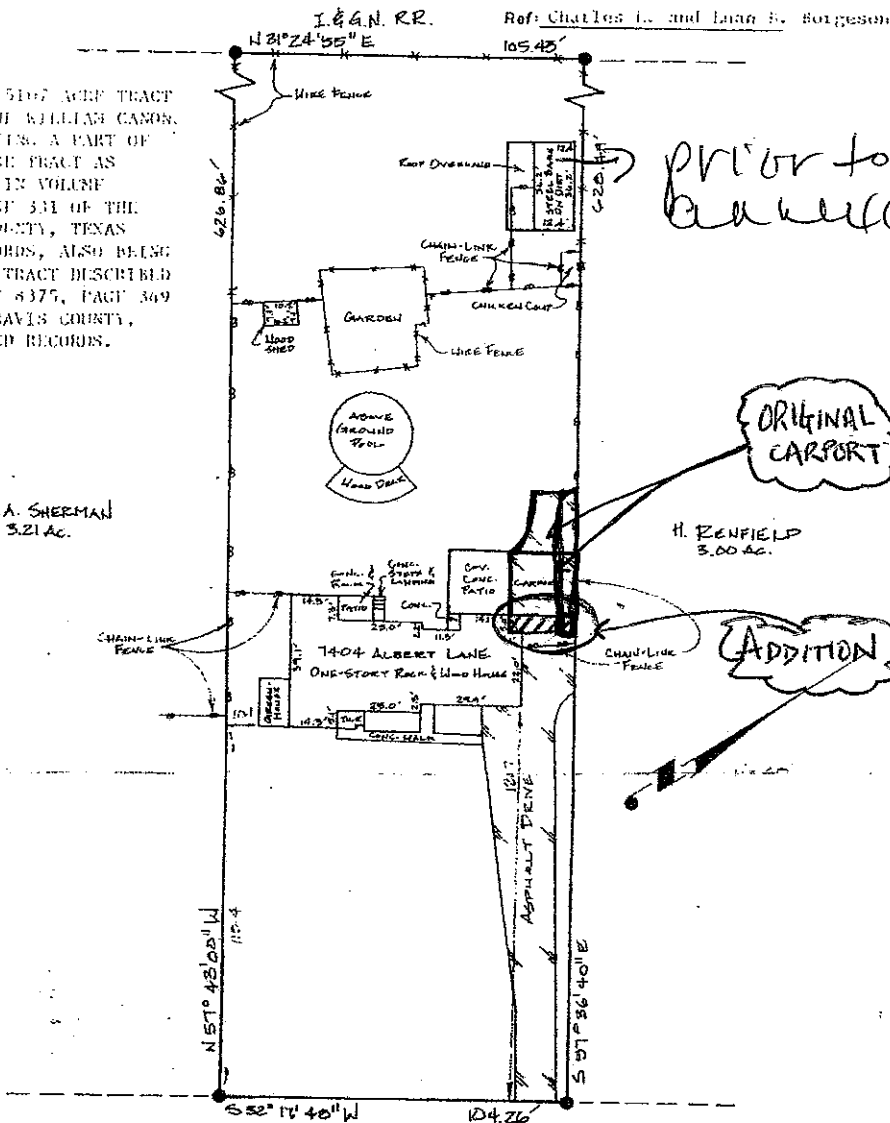 I.&G.N. RR.
Ref: Charles L. and Luan S. Borgeson
N 31° 24' 55" E 105.43'
WIRE FENCE
ACRE TRACT
WILLIAM CANON
A PART OF
TRACT AS
IN VOLUME
331 OF THE
COUNTY, TEXAS
RECORDS, ALSO BEING
TRACT DESCRIBED
8375, PAGE 349
TRAVIS COUNTY,
RECORDS.
626.86'
628.49'
ROOF OVERHANG
STEEL BARN
ON DIRT
36.2'
36.2'
prior to
CHAIN-LINK
FENCE
CHICKEN COUP
GARDEN
WOOD
SHED
WIRE FENCE
ABOVE
GROUND
POOL
WOOD DECK
ORIGINAL
CARPORT
A. SHERMAN
3.21 AC.
H. RENFIELD
3.00 AC.
COV.
CONC.
PATIO
CONC.
STEPS &
LANDING
CONC. &
PATIO
CONC.
14.3'
23.0'
11.5'
CHAIN-LINK
FENCE
7404 ALBERT LANE
ONE-STORY ROCK & WOOD HOUSE
39.1'
22.0'
CHAIN-LINK
FENCE
ADDITION
GREEN-
HOUSE
14.3'
25.0'
29.9'
CONC. WALK
120.7
ASPHALT DRIVE
115.4
N 57° 43' 00" W
S 57° 36' 40" E
S 32° 17' 48" W 104.26'